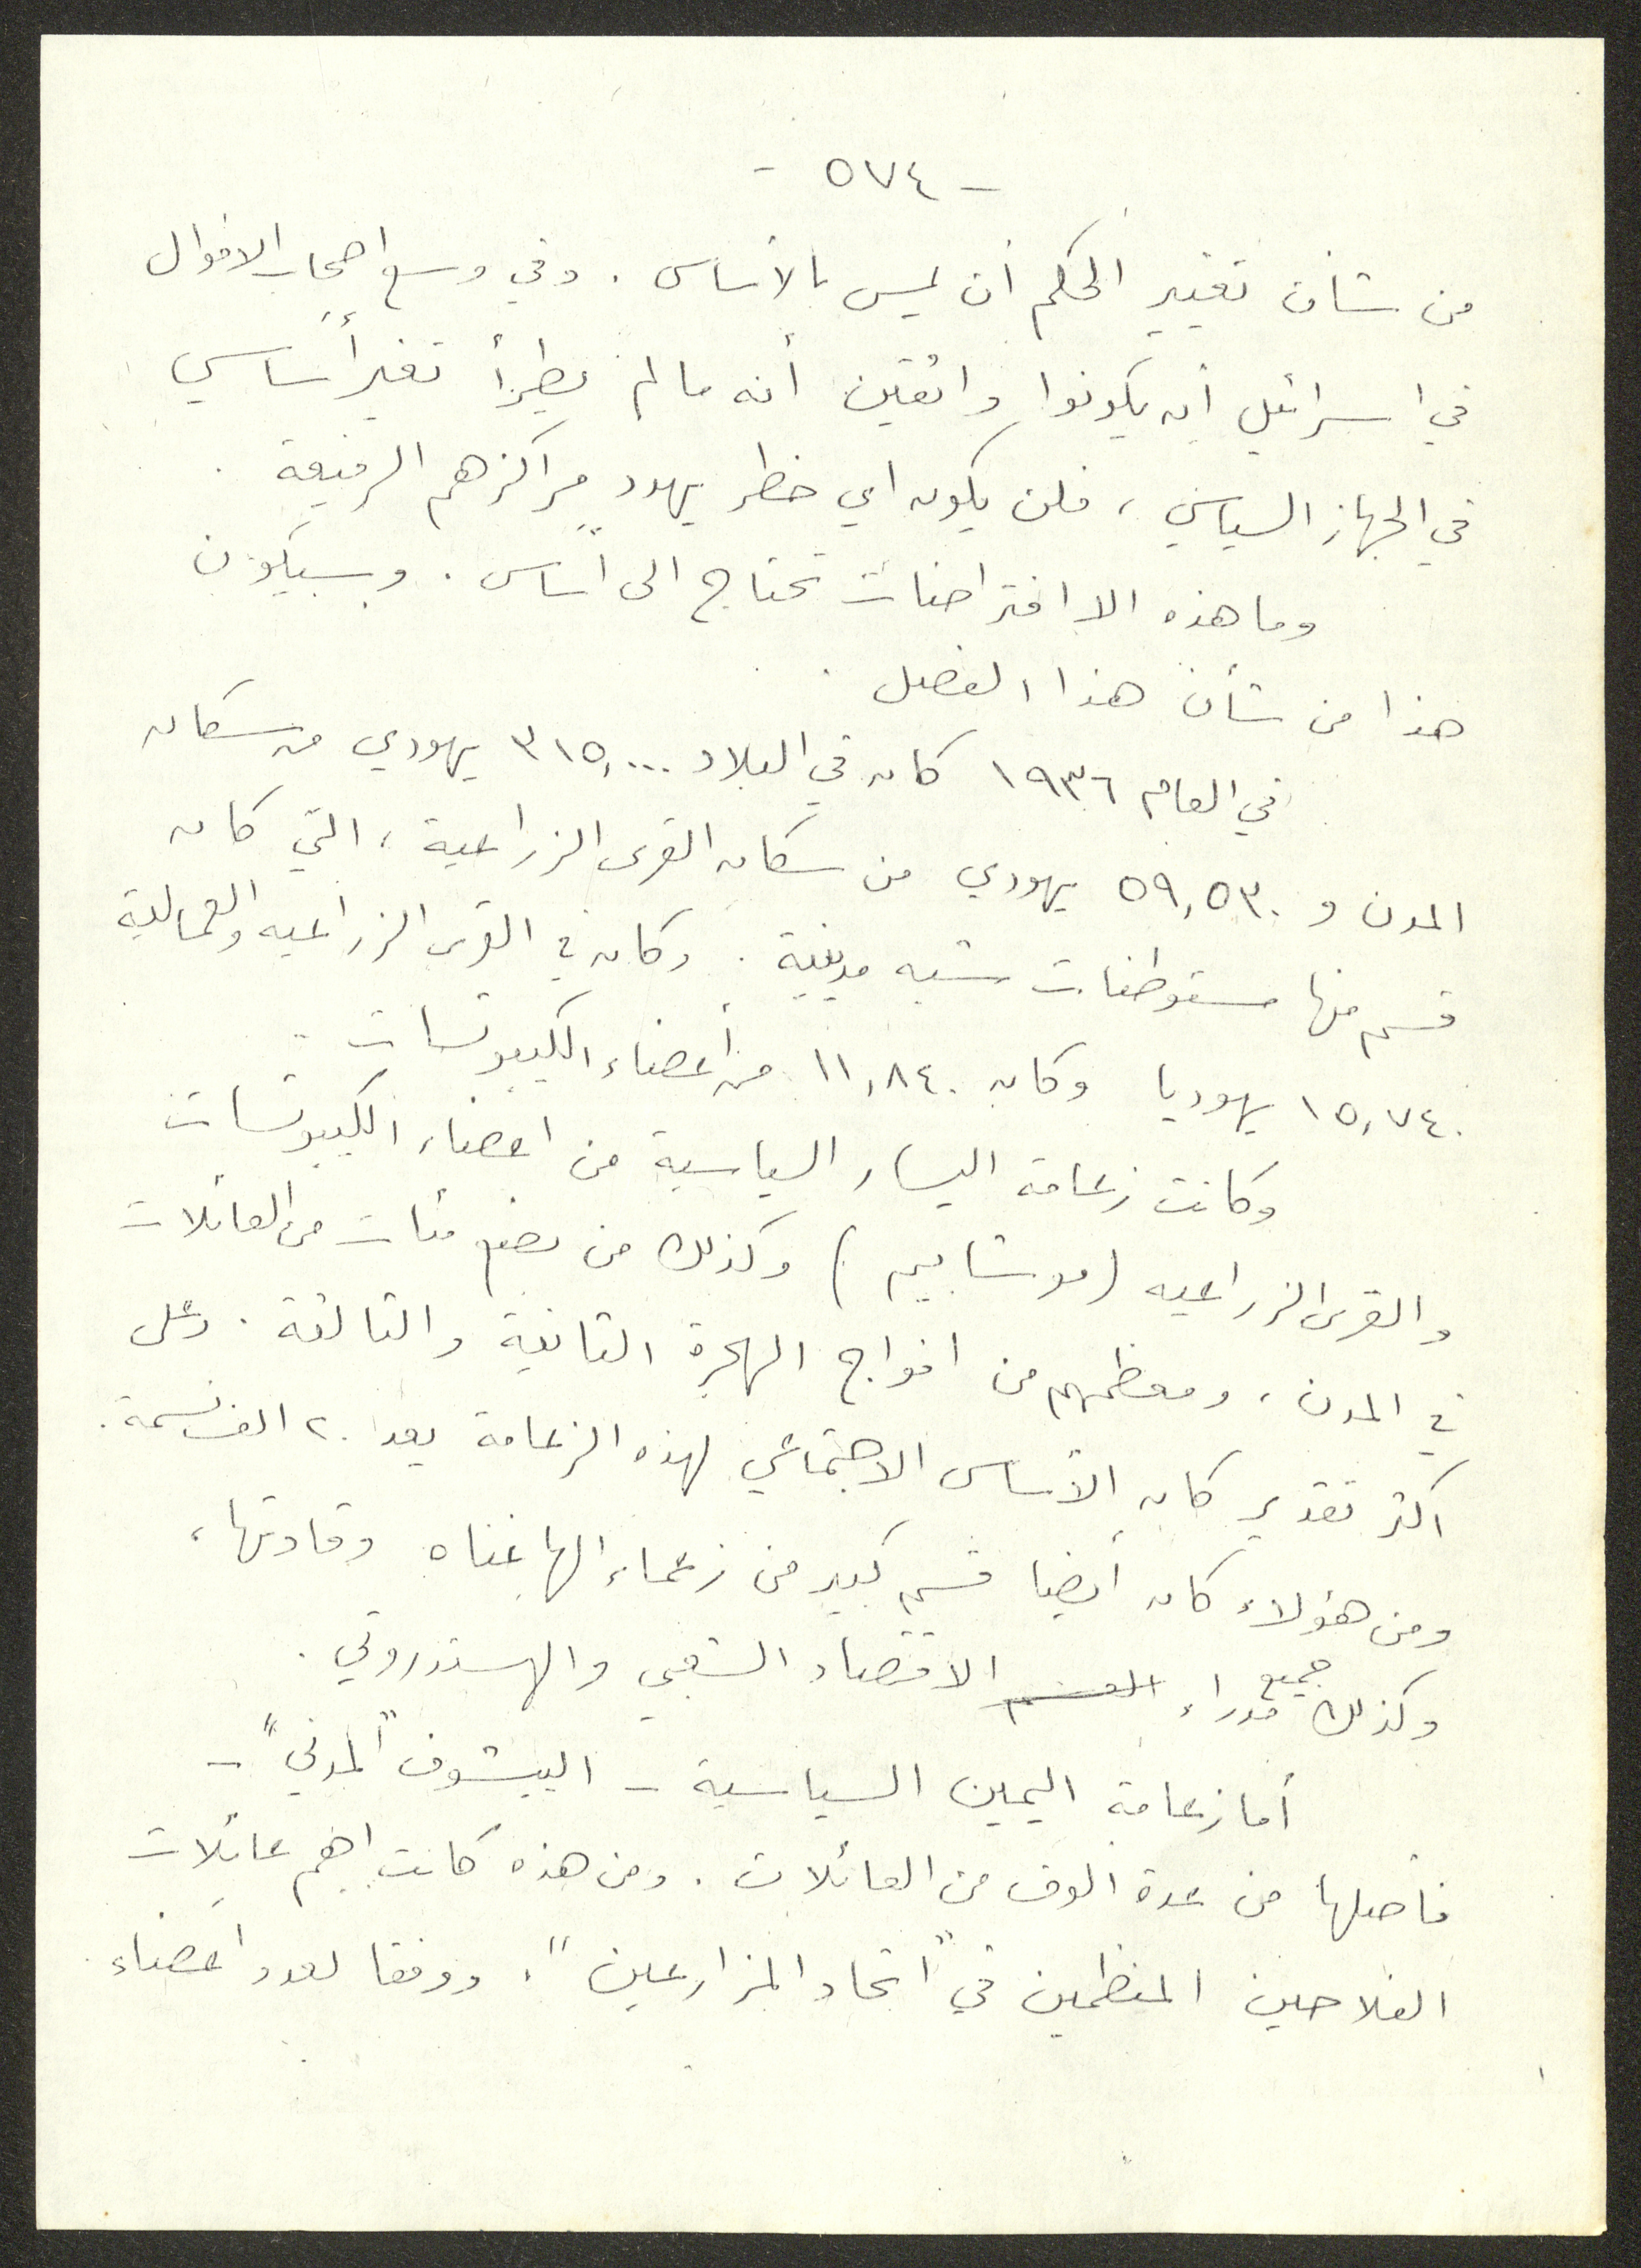 - ٥٧٤ -
من شأن تغيير الحكم أن يمس بالأساس . وفي وسع اصحاب الاقوال
في اسرائيل أن يكونوا واثقين أنه ما لم يطرأ تغير أساسي
في الجهاز السياسي ، فلن يكون اي خطر يهدد مراكزهم الرفيعة .
وما هذه الا افتراضات تحتاج الى أساس . وسيكون
هذا من شأن هذا الفصل .
في العام ١٩٣٦ كان في البلاد ٣١٥,٠٠٠ يهودي من سكان
المدن و ٥٩,٥٣٠ يهودي من سكان القرى الزراعية ، التي كان
قسم منها مستوطنات شبه مدينية . وكان في القرى الزراعيه والعمالية
١٥,٧٤٠ يهوديا وكان ١١,٨٤٠ من أعضاء الكيبوتسات
وكانت زعامة اليسار السياسية من اعضاء الكيبوتسات
والقرى الزراعيه (موشابيم) وكذلك من بضع مئات من العائلات
في المدن ، ومعظمهم من افواج الهجرة الثانية والثالثة . وعلى
اكثر تقدير كان الأساس الاجتماعي لهذه الزعامة يعد ٢٠ الف نسمة .
ومن هؤلاء كان أيضا قسم كبير من زعماء الهاغناه وقادتها ،
وكذلك جميع مدراء القسم الاقتصاد الشعبي والهستدروتي .
أما زعامة اليمين السياسية - الييشوف "المدني" -
فأصلها من عدة الوف من العائلات . ومن هذه كانت اهم عائلات
الفلاحين المنظمين في "اتحاد المزارعين" . ووفقا لعدد اعضاء